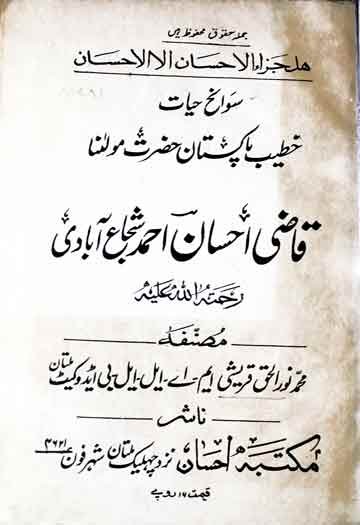 جملہ حقوق محفوظ ہیں
هل جزاء الاحسان الا الاحسان
سوانح حیات
خطیب پاکستان حضرت مولٰنا
قاضی احسان احمد شجاع آبادی
رحمۃ اللہ علیہ
مصنفہ
محمد نور الحق قریشی ایم-اے-ایل-ایل-بی ایڈووکیٹ ملتان
ناشر
مکتبہ احسان نزد چہلیک ملتان شہر فون ۳۶۲۱
قیمت ۱۶ روپے